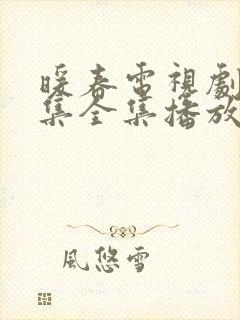 暖春電視劇
集全集播放
風悠雪